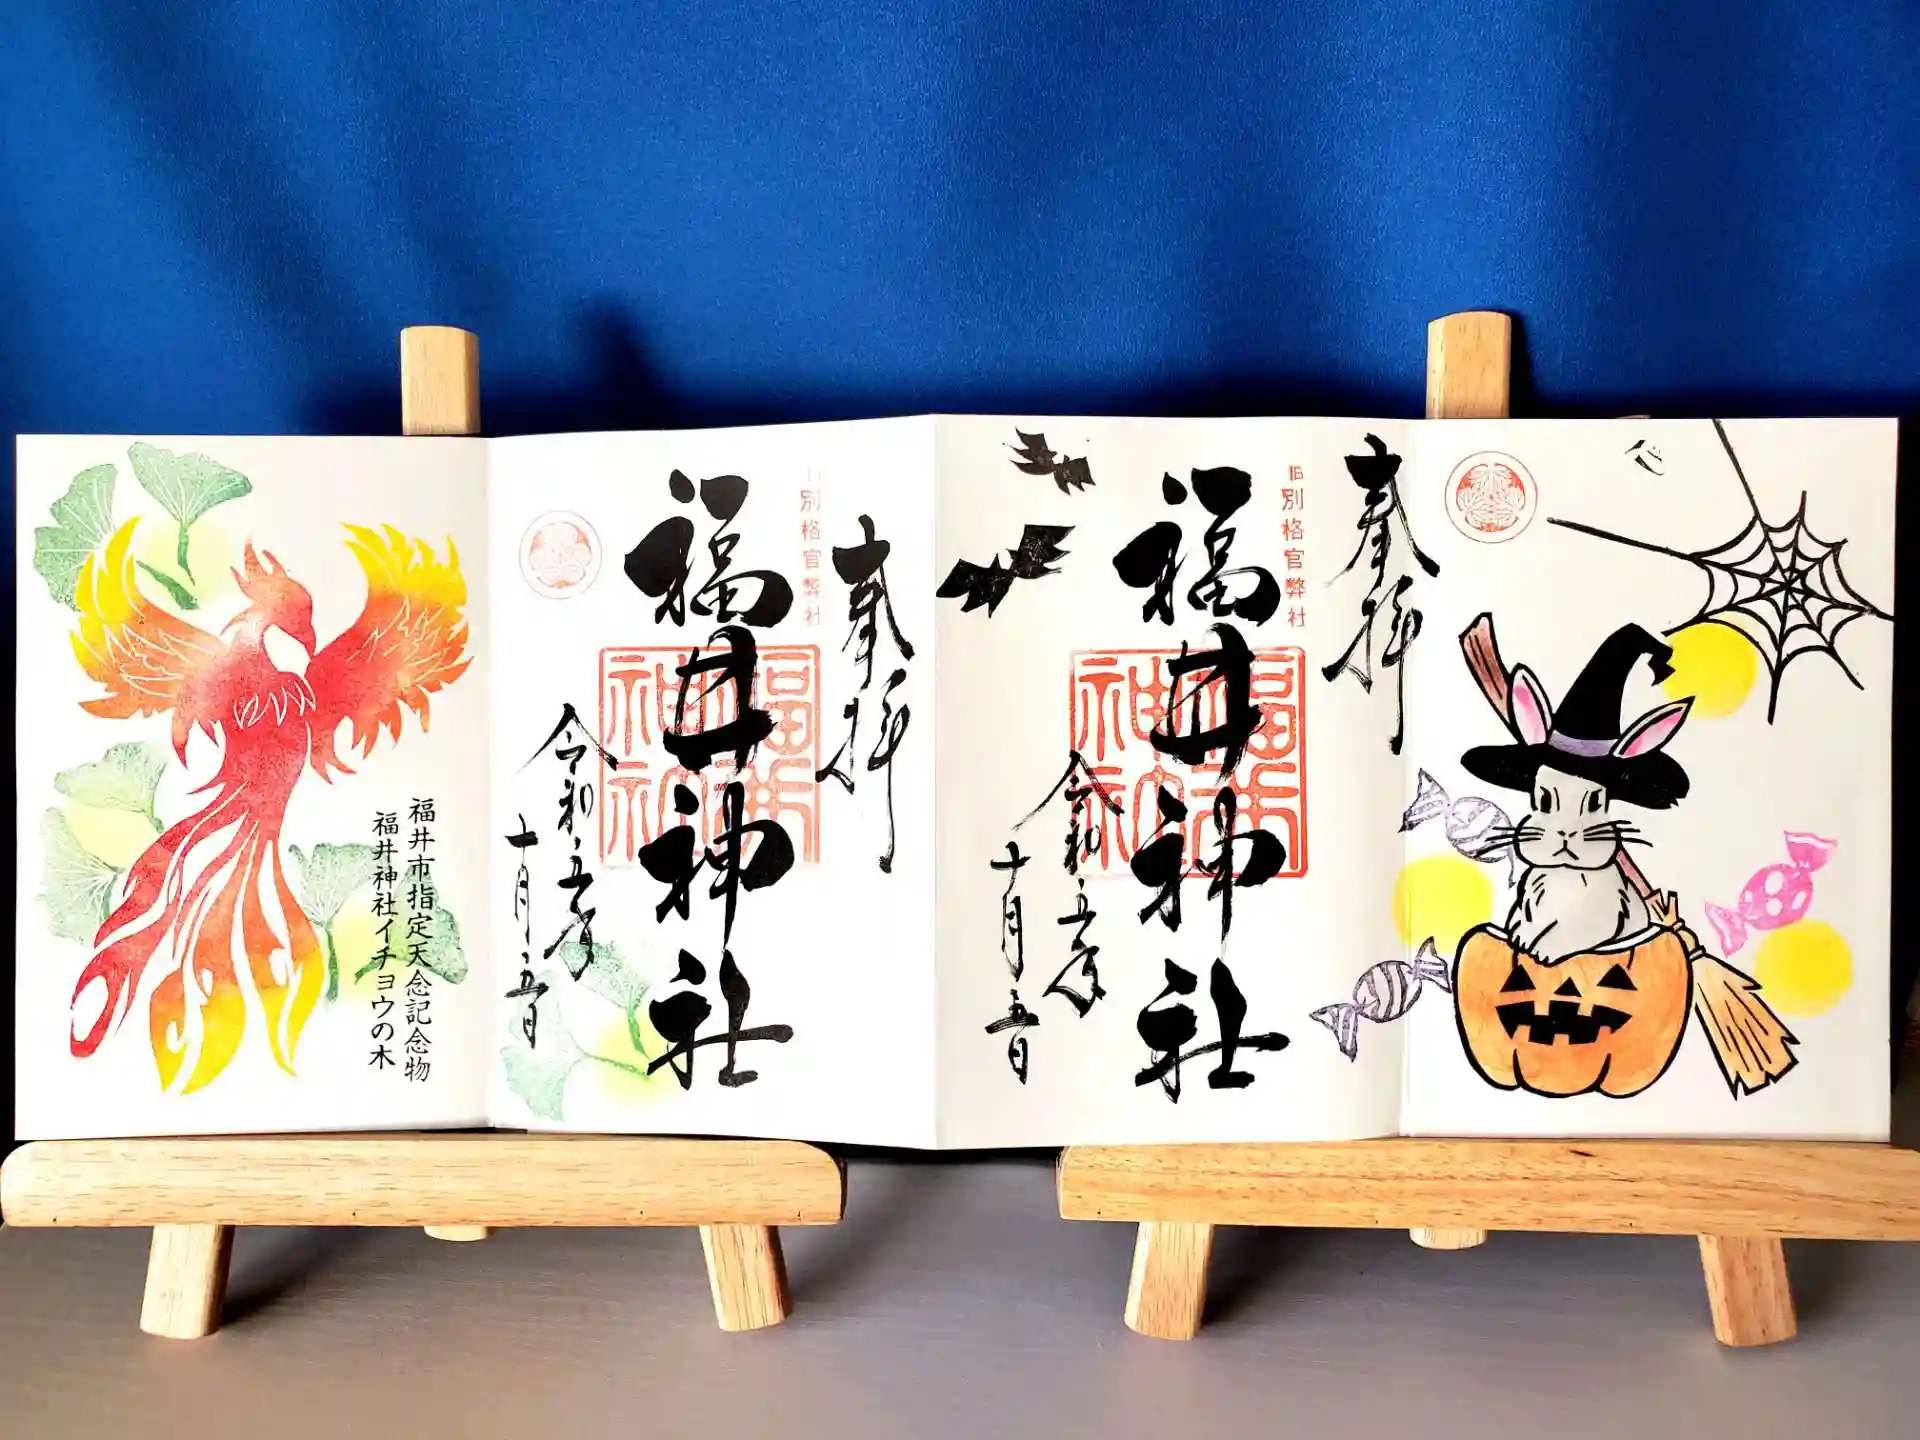 奉拝
旧別格官弊社
福井神社
福井神社
令和五年
十月五日
奉拝
旧別格官弊社
福井神社
福井神社
令和五年
十月五日
福井市指定天念記念物
福井神社イチョウの木